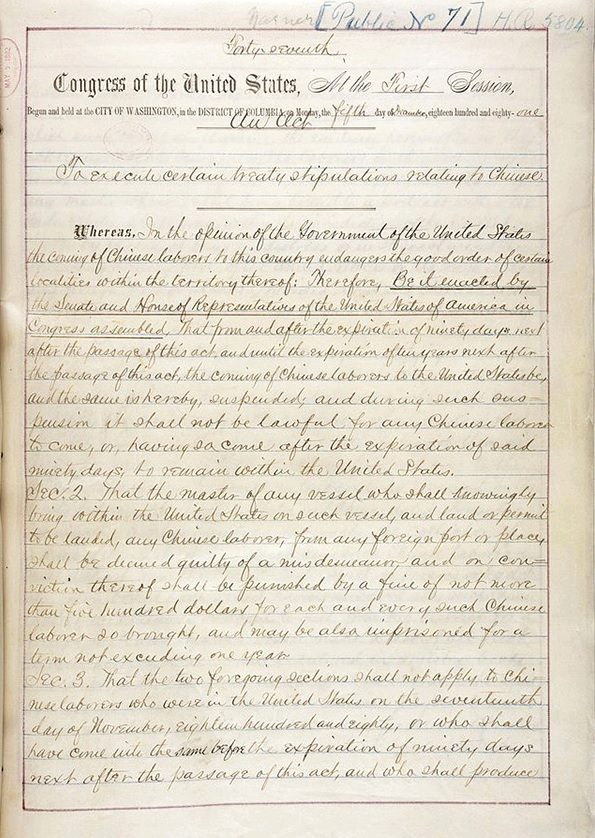 Warner [Public No 71] H.R. 5804.
Forty-seventh
Congress of the United States, At the First Session,
Begun and held at the CITY OF WASHINGTON, in the DISTRICT OF COLUMBIA, on Monday, the fifth day of December, eighteen hundred and eighty-one
An Act
To execute certain treaty stipulations relating to Chinese.
Whereas, In the opinion of the Government of the United States
the coming of Chinese laborers to this country endangers the good order of certain
localities within the territory thereof: Therefore, Be it enacted by
the Senate and House of Representatives of the United States of America in
Congress assembled, That from and after the expiration of ninety days next
after the passage of this act, and until the expiration of ten years next after
the passage of this act, the coming of Chinese laborers to the United States be,
and the same is hereby, suspended; and during such sus=
pension it shall not be lawful for any Chinese laborer
to come, or, having so come after the expiration of said
ninety days, to remain within the United States.
Sec. 2. That the master of any vessel who shall knowingly
bring within the United States on such vessel, and land or permit
to be landed, any Chinese laborer, from any foreign port or place,
shall be deemed guilty of a misdemeanor, and on con=
viction thereof shall be punished by a fine of not more
than five hundred dollars for each and every such Chinese
laborer so brought, and may be also imprisoned for a
term not exceeding one year.
Sec. 3. That the two foregoing sections shall not apply to Chi=
nese laborers who were in the United States on the seventeenth
day of November, eighteen hundred and eighty, or who shall
have come into the same before the expiration of ninety days
next after the passage of this act, and who shall produce